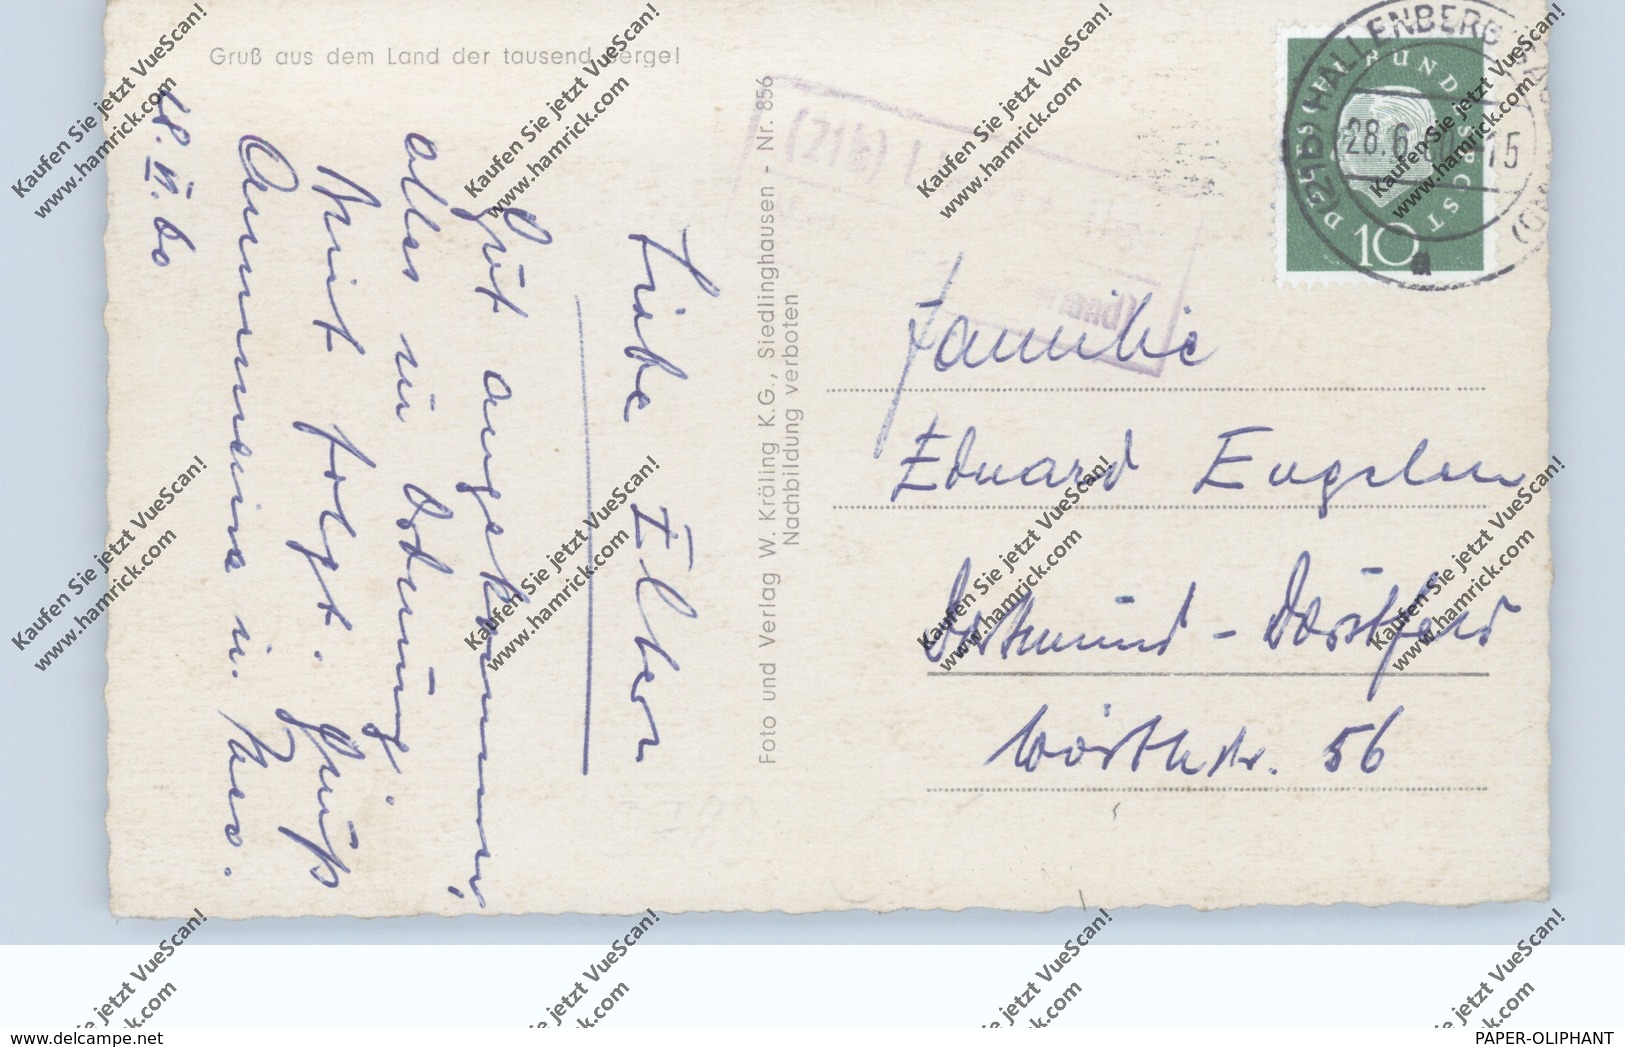 Gruß aus dem Land der tausend Berge!
28.VI.60
Liebe Eltern
Gut angekommen,
alles in Ordnung.
Brief folgt. Gruß
Annemarie u.
Foto und Verlag W. Kröling K.G., Siedlinghausen - Nr. 856
Nachbildung verboten
(21b) L
DEUTSCHE BUNDESPOST
10
HALLENBERG
28.6.60-15
a
Familie
Eduard Engelen
Dortmund - Dorstfeld
Wörthstr. 56
Kaufen Sie jetzt VueScan!
www.hamrick.com
www.delcampe.net
PAPER-OLIPHANT